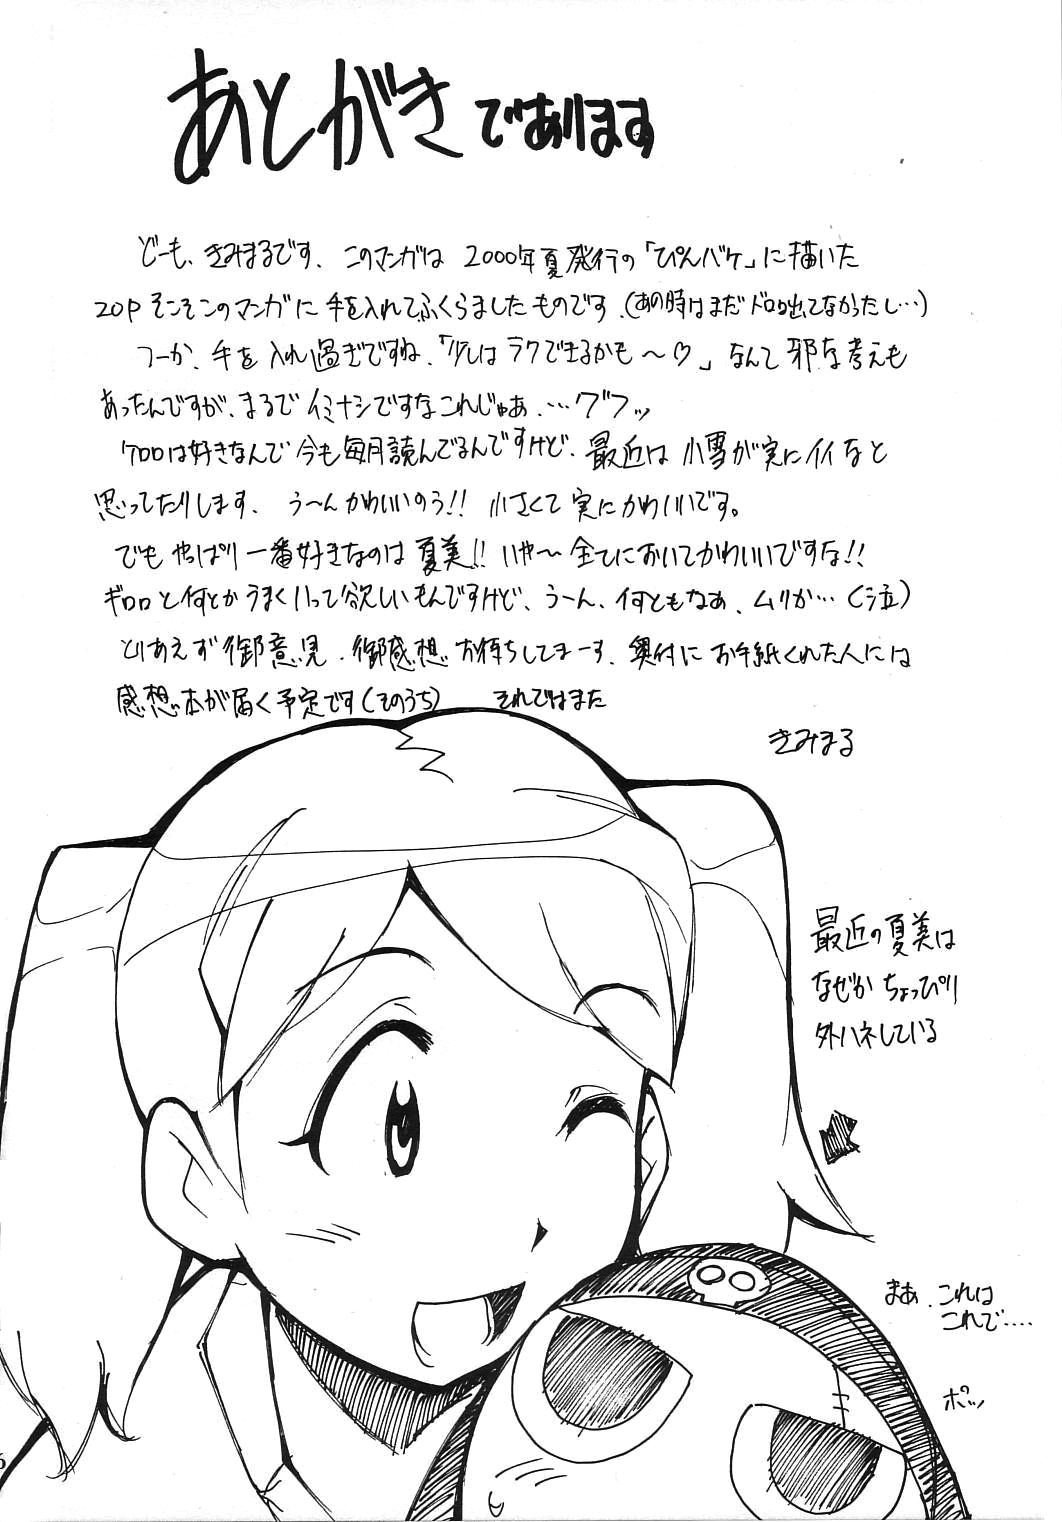 あとがきであります
どーも、きみまるです、このマンガは2000年夏発行の「ぴんバケ」に描いた
20Pそこそこのマンガに手を入れてふくらましたものです、(あの時はまだドロロ出てなかったし…)
つーか、手を入れ過ぎですね、「少しはラクできるかも〜♡」なんて邪な考えも
あったんですが、まるでイミナシですなこれじゃあ、…グフッ
ケロロは好きなんで今も毎月読んでるんですけど、最近は小雪が実にイイなと
思ってたりします、う〜んかわいいのう!!小さくて実にかわいいです。
でもやっぱり一番好きなのは夏美!!いや〜全てにおいてかわいいですな!!
ギロロと何とかうまくいって欲しいもんですけど、うーん、何ともなあ、ムリか…(泣)
とりあえず御意見、御感想お待ちしてまーす、奥付にお手紙くれた人には
感想本が届く予定です(そのうち) それではまた
きみまる
最近の夏美は
なぜかちょっぴり
外ハネしている
まあ、これは
これで‥‥
ポッ
6